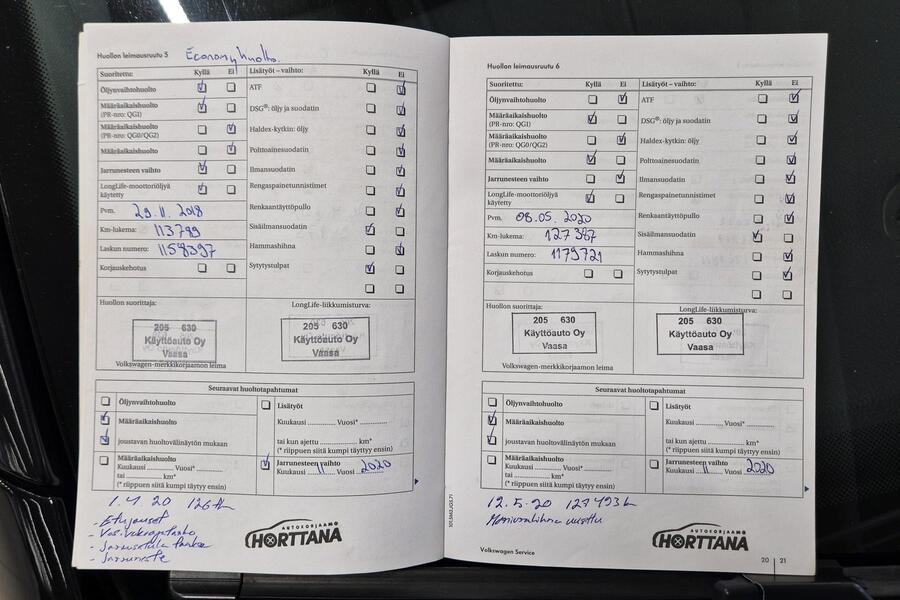 Huollon leimausruutu 5 Economyhuolto.
Suoritettu: Kyllä Ei
Öljynvaihtohuolto
Määräaikaishuolto
(PR-nro: QG1)
Määräaikaishuolto
(PR-nro: QG0/QG2)
Määräaikaishuolto
Jarrunesteen vaihto
LongLife-moottoriöljyä
käytetty
Pvm. 29.11.2018
Km-lukema: 113789
Laskun numero: 1158397
Korjauskehotus
Lisätyöt – vaihto: Kyllä Ei
ATF
DSG®: öljy ja suodatin
Haldex-kytkin: öljy
Polttoainesuodatin
Ilmansuodatin
Rengaspainetunnistimet
Renkaantäyttöpullo
Sisäilmansuodatin
Hammashihna
Sytytystulpat
Huollon suorittaja:
205 630
Käyttöauto Oy
Vaasa
Volkswagen-merkkikorjaamon leima
LongLife-liikkumisturva:
205 630
Käyttöauto Oy
Vaasa
Seuraavat huoltotapahtumat
Öljynvaihtohuolto
Määräaikaishuolto
joustavan huoltovälinäytön mukaan
Määräaikaishuolto
Kuukausi Vuosi*
tai km*
(* riippuen siitä kumpi täyttyy ensin)
Lisätyöt
Kuukausi Vuosi*
tai kun ajettu km*
(* riippuen siitä kumpi täyttyy ensin)
Jarrunesteen vaihto
Kuukausi 11 Vuosi 2020
1.4.20 126
- Etujouset
- Jarruneste
AUTOKORJAAMO
HORTTANA
Huollon leimausruutu 6
Suoritettu: Kyllä Ei
Öljynvaihtohuolto
Määräaikaishuolto
(PR-nro: QG1)
Määräaikaishuolto
(PR-nro: QG0/QG2)
Määräaikaishuolto
Jarrunesteen vaihto
LongLife-moottoriöljyä
käytetty
Pvm. 08.05.2020
Km-lukema: 127387
Laskun numero: 1179721
Korjauskehotus
Lisätyöt – vaihto: Kyllä Ei
ATF
DSG®: öljy ja suodatin
Haldex-kytkin: öljy
Polttoainesuodatin
Ilmansuodatin
Rengaspainetunnistimet
Renkaantäyttöpullo
Sisäilmansuodatin
Hammashihna
Sytytystulpat
Huollon suorittaja:
205 630
Käyttöauto Oy
Vaasa
Volkswagen-merkkikorjaamon leima
LongLife-liikkumisturva:
205 630
Käyttöauto Oy
Vaasa
Seuraavat huoltotapahtumat
Öljynvaihtohuolto
Määräaikaishuolto
joustavan huoltovälinäytön mukaan
Määräaikaishuolto
Kuukausi Vuosi*
tai km*
(* riippuen siitä kumpi täyttyy ensin)
Lisätyöt
Kuukausi Vuosi*
tai kun ajettu km*
(* riippuen siitä kumpi täyttyy ensin)
Jarrunesteen vaihto
Kuukausi 11 Vuosi 2020
12.5.20 127493
AUTOKORJAAMO
HORTTANA
Volkswagen Service
20 21